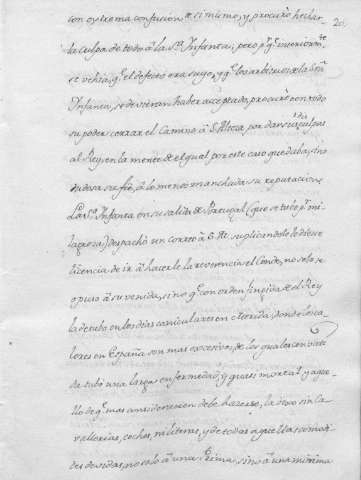 con extrema confusion de si mismo, y procuró hechar
la culpa de todo à la Sra Infanta, pero pr q interiormte
se vehia, q el defecto era suyo, y q los arbitrios de la Sra
Infanta, se devieran haber acceptado, procuró con todo
su poder cerrar el Camino à S. Alteza por dar sus disculpas
al Rey, en la mente de el qual por este caso quedaba, sino
dudosa su fe, à lo menos manchada su reputacion
La Sra Infanta en su salida de Portugal (que se tubo pr mi-
lagrosa) despachó un correo à S. M. suplicandole le diesse
licencia de ir à hacerle la reverencia el Conde, no solo se
opuso à su venida, sino q con orden fingida de el Rey
la detubo en los dias caniculares en Merida, donde los ca-
lores en España son mas excesivos, de los quales
tubo una larga enfermedad, y quasi mortal y aque-
llo de q mas una detencion debe hacerse, la dexo sin ca-
vallerias, coches, ni literas, y de todas aquellas comodi-
des devidas, no solo à una sino à una minima